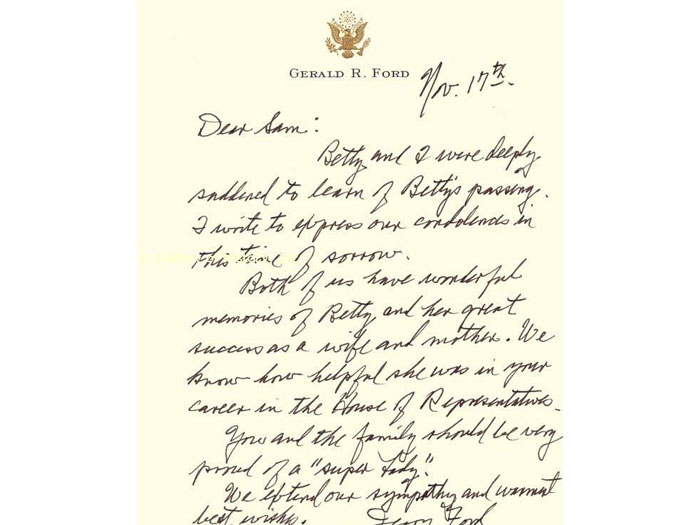 GERALD R. FORD
Nov. 17th.
Dear Sam:
Betty and I were deeply
saddened to learn of Betty's passing.
I write to express our condolences in
this time of sorrow.
Both of us have wonderful
memories of Betty and her great
success as a wife and mother. We
know how helpful she was in your
career in the House of Representatives.
You and the family should be very
proud of a "super lady".
We extend our sympathy and warmest
best wishes. Jerry Ford